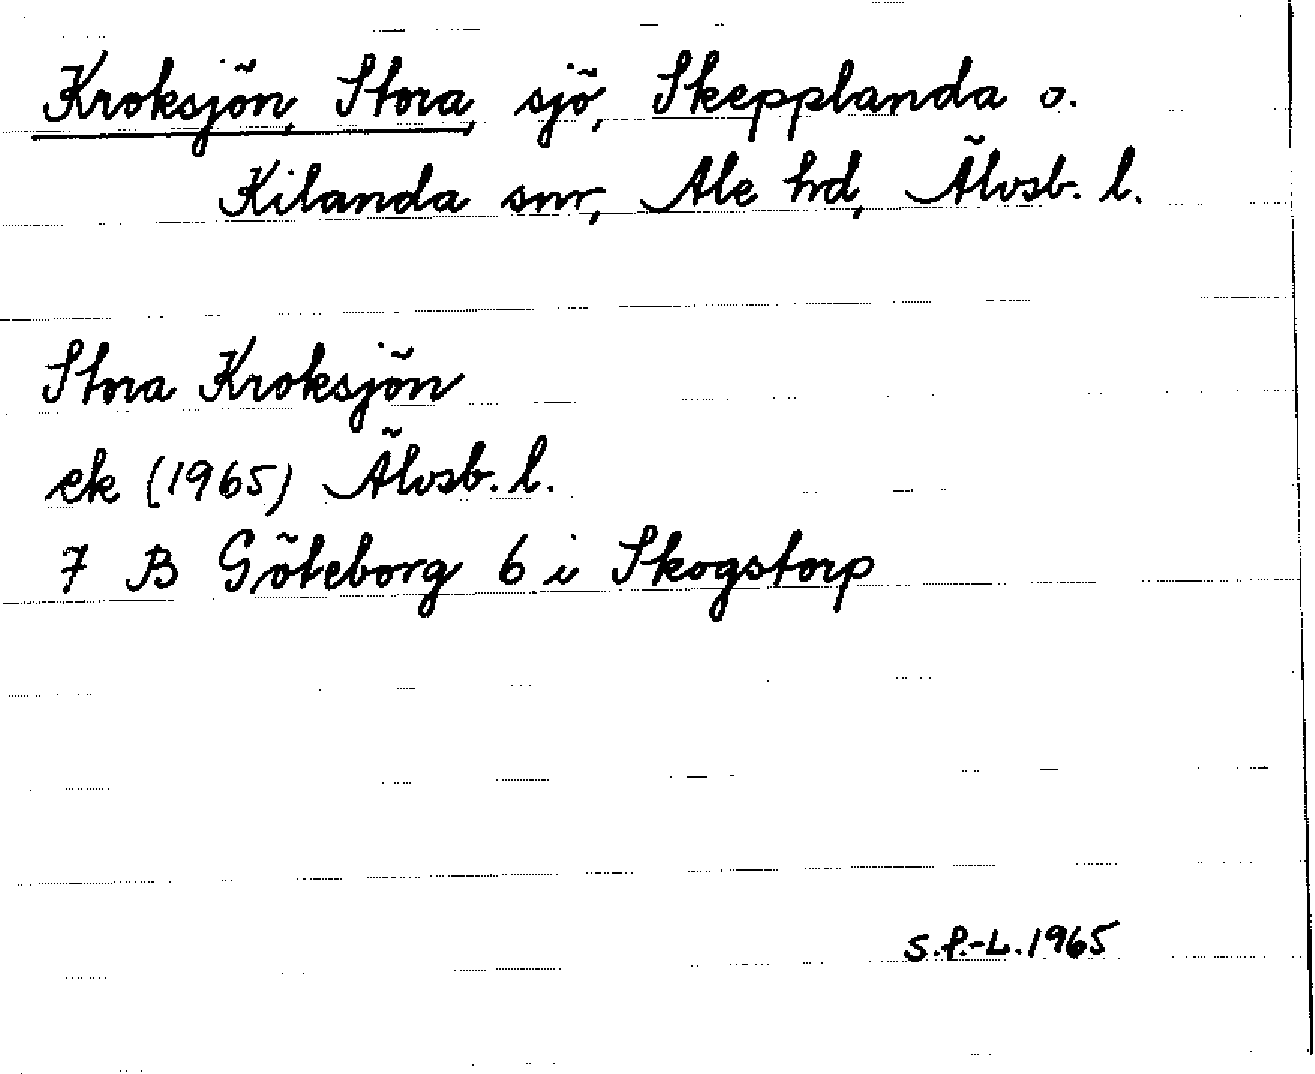 Kroksjön, Stora, sjö, Skepplanda o.
Kilanda snr, Ale hd, Älvsb. l.
Stora Kroksjön
ek (1965) Älvsb. l.
7 B Göteborg 6 i Skogstorp
S.P.-L. 1965